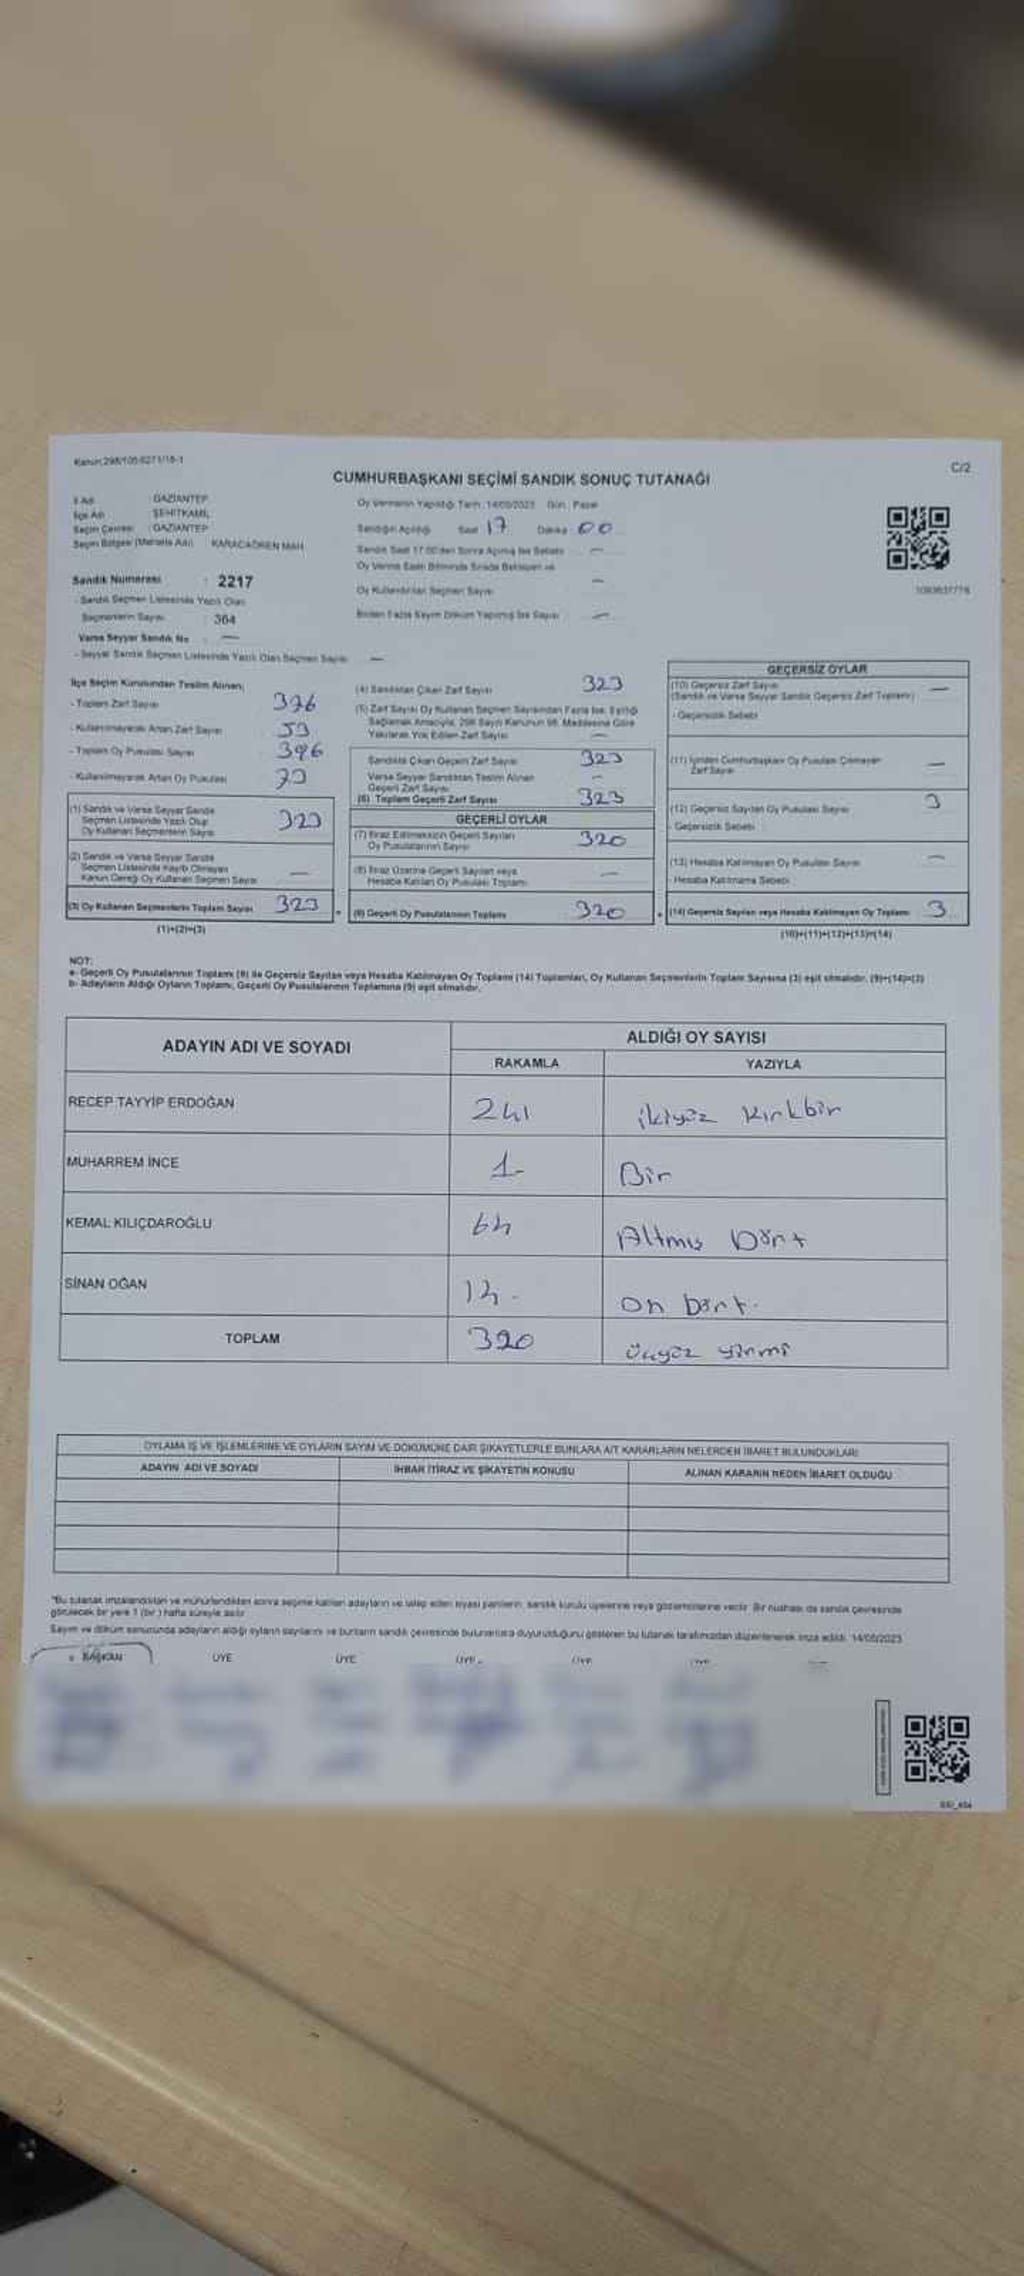 Kanun:298/105-6271/18-1
C/2
CUMHURBAŞKANI SEÇİMİ SANDIK SONUÇ TUTANAĞI
İl Adı : GAZİANTEP
İlçe Adı : ŞEHİTKAMİL
Seçim Çevresi : GAZİANTEP
Seçim Bölgesi (Mahalle Adı) : KARACAÖREN MAH.
Oy Vermenin Yapıldığı Tarih : 14/05/2023 Gün : Pazar
Sandığın Açıldığı Saat 17 Dakika 00
Sandık Saat 17.00'den Sonra Açılmış İse Sebebi —
Oy Verme Saati Bitiminde Sırada Bekleyen ve
Oy Kullandırılan Seçmen Sayısı —
Birden Fazla Sayım Döküm Yapılmış İse Sayısı —
Sandık Numarası : 2217
- Sandık Seçmen Listesinde Yazılı Olan
Seçmenlerin Sayısı : 364
Varsa Seyyar Sandık No : —
- Seyyar Sandık Seçmen Listesinde Yazılı Olan Seçmen Sayısı —
İlçe Seçim Kurulundan Teslim Alınan;
- Toplam Zarf Sayısı
- Kullanılmayarak Artan Zarf Sayısı
- Toplam Oy Pusulası Sayısı 396
- Kullanılmayarak Artan Oy Pusulası 73
(1) Sandık ve Varsa Seyyar Sandık
Seçmen Listesinde Yazılı Olup
Oy Kullanan Seçmenlerin Sayısı 323
(2) Sandık ve Varsa Seyyar Sandık
Seçmen Listesinde Kaydı Olmayan
Kanun Gereği Oy Kullanan Seçmen Sayısı —
(3) Oy Kullanan Seçmenlerin Toplam Sayısı 323
(1)+(2)=(3)
(4) Sandıktan Çıkan Zarf Sayısı 323
(5) Zarf Sayısı Oy Kullanan Seçmen Sayısından Fazla İse, Eşitliği
Sağlamak Amacıyla, 298 Sayılı Kanunun 98. Maddesine Göre
Yakılarak Yok Edilen Zarf Sayısı —
Sandıkta Çıkan Geçerli Zarf Sayısı 323
Varsa Seyyar Sandıktan Teslim Alınan
Geçerli Zarf Sayısı —
(6) Toplam Geçerli Zarf Sayısı 323
GEÇERLİ OYLAR
(7) İtiraz Edilmeksizin Geçerli Sayılan
Oy Pusulalarının Sayısı 320
(8) İtiraz Üzerine Geçerli Sayılan veya
Hesaba Katılan Oy Pusulası Toplamı —
(9) Geçerli Oy Pusulalarının Toplamı 320
GEÇERSİZ OYLAR
(10) Geçersiz Zarf Sayısı —
(Sandık ve Varsa Seyyar Sandık Geçersiz Zarf Toplamı)
- Geçersizlik Sebebi
(11) İçinden Cumhurbaşkanı Oy Pusulası Çıkmayan
Zarf Sayısı —
(12) Geçersiz Sayılan Oy Pusulası Sayısı 3
- Geçersizlik Sebebi :
(13) Hesaba Katılmayan Oy Pusulası Sayısı —
- Hesaba Katılmama Sebebi :
(14) Geçersiz Sayılan veya Hesaba Katılmayan Oy Toplamı 3
(10)+(11)+(12)+(13)=(14)
NOT:
a- Geçerli Oy Pusulalarının Toplamı (9) ile Geçersiz Sayılan veya Hesaba Katılmayan Oy Toplamı (14) Toplamları, Oy Kullanan Seçmenlerin Toplam Sayısına (3) eşit olmalıdır. (9)+(14)=(3)
b- Adayların Aldığı Oyların Toplamı, Geçerli Oy Pusulalarının Toplamına (9) eşit olmalıdır.
ADAYIN ADI VE SOYADI
ALDIĞI OY SAYISI
RAKAMLA YAZIYLA
RECEP TAYYİP ERDOĞAN 241 ikiyüz kırkbir
MUHARREM İNCE 1 Bir
KEMAL KILIÇDAROĞLU 64 Altmış Dört
SİNAN OĞAN 14 on dört
TOPLAM 320 üçyüz yirmi
OYLAMA İŞ VE İŞLEMLERİNE VE OYLARIN SAYIM VE DÖKÜMÜNE DAİR ŞİKAYETLERLE BUNLARA AİT KARARLARIN NELERDEN İBARET BULUNDUKLARI
ADAYIN ADI VE SOYADI İHBAR İTİRAZ VE ŞİKAYETİN KONUSU ALINAN KARARIN NEDEN İBARET OLDUĞU
*Bu tutanak imzalandıktan ve mühürlendikten sonra seçime katılan adayların ve talep eden siyasi partilerin, sandık kurulu üyelerine veya gözlemcilerine verilir. Bir nüshası da sandık çevresinde
görülecek bir yere 1 (bir) hafta süreyle asılır.
Sayım ve döküm sonucunda adayların aldığı oyların sayılarını ve bunların sandık çevresinde bulunanlara duyurulduğunu gösteren bu tutanak tarafımızdan düzenlenerek imza edildi. 14/05/2023
BAŞKAN ÜYE ÜYE ÜYE ÜYE ÜYE